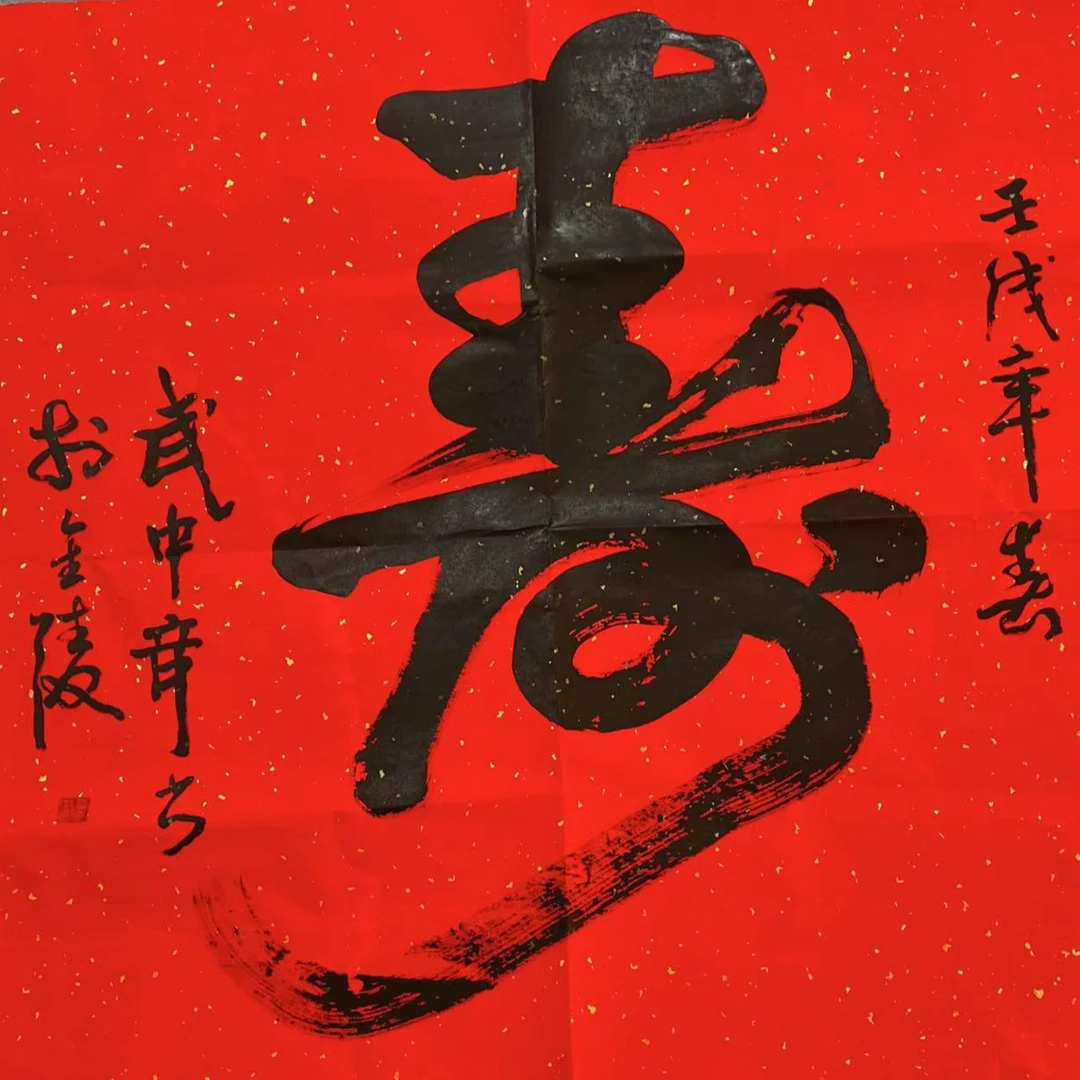 壬戌年春
寿
武中奇书
於金陵